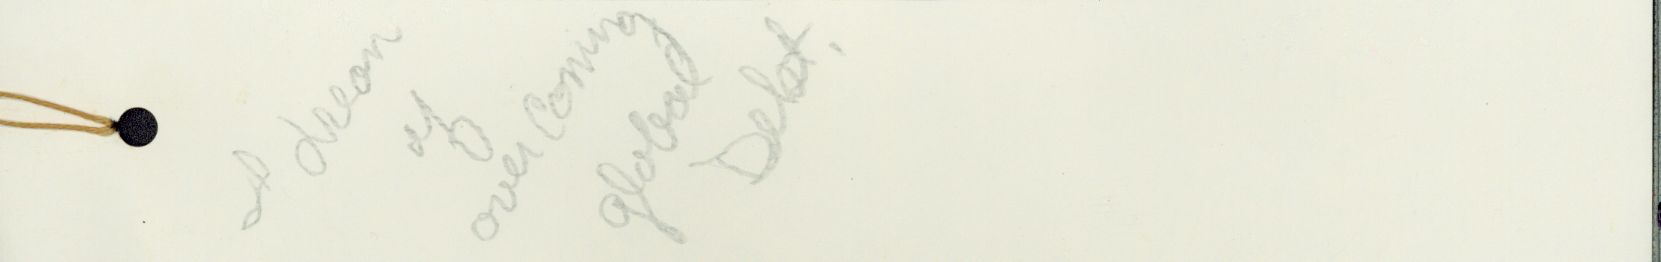 I dream
of
overcoming
global
Debt.